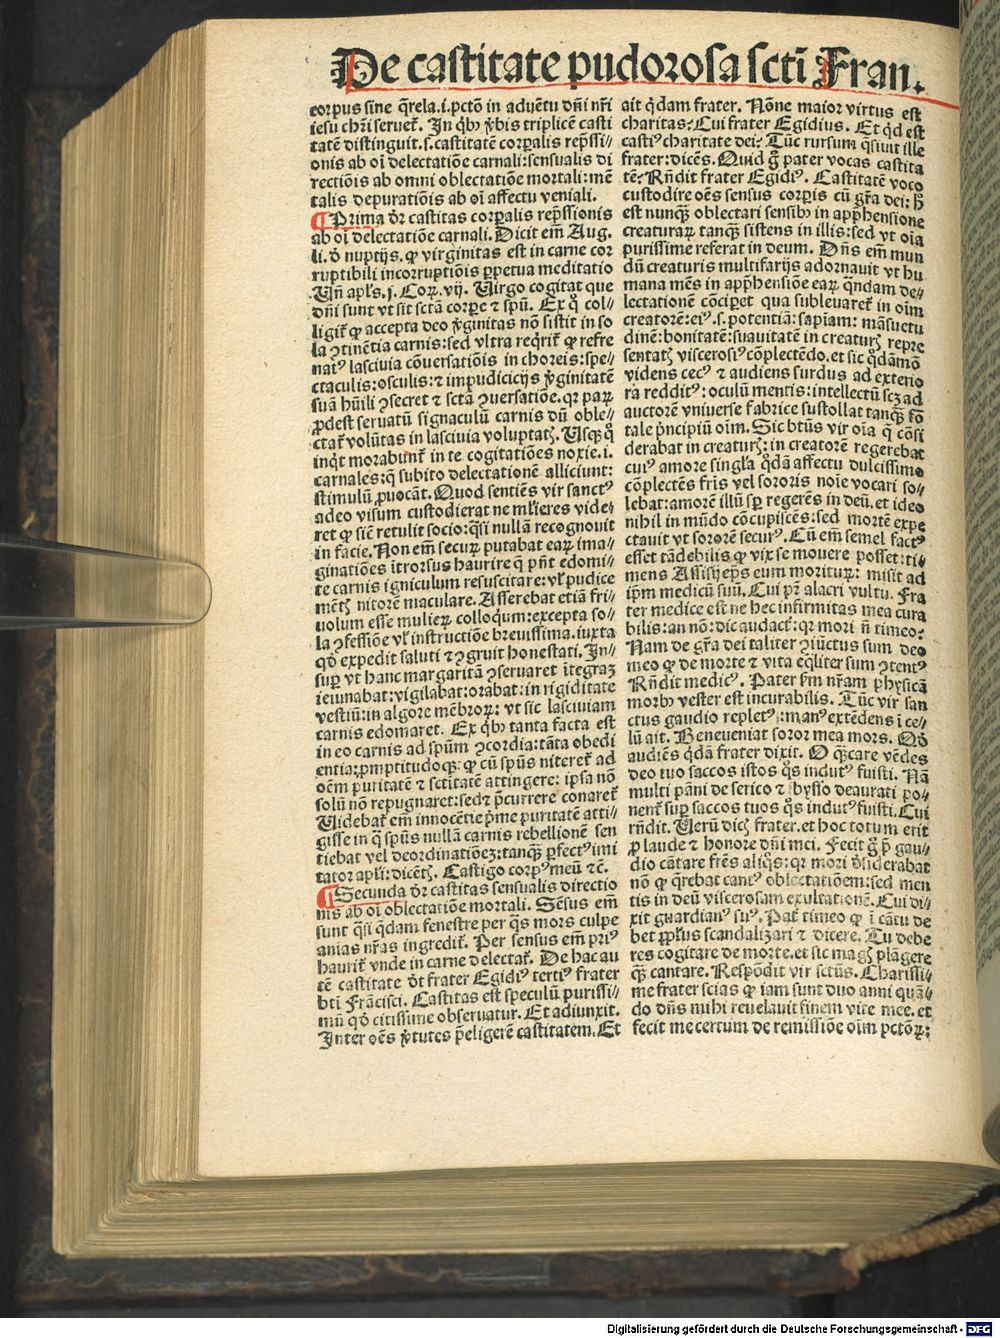 De castitate pudorosa scti Fran.
corpus sine q̄rela.i.pctō in aduētu dn̄i nr̄i
iesu chr̄i seruet̄. In qͥbꝰ v̄bis triplicē casti
tatē distinguit.s.castitatē corp̄alis rep̄ssi⸗
onis ab oī delectatiōe carnali:sensualis di
rectiōis ab omni oblectatiōe mortali:mē
talis depuratiōis ab oī affectu veniali.
¶ Prima dr̄ castitas corp̄alis rep̄ssionis
ab oī delectatiōe carnali. Dicit em̄ Aug.
li. de nuptijs. ꝙ virginitas est in carne cor
ruptibili incorruptiōis ꝑpetua meditatio
Vn̄ apl̄s.j. Coꝝ. vij. Virgo cogitat que
dn̄i sunt vt sit sctā corꝑe ⁊ spū. Ex qͦ col⸗
ligit̄ ꝙ accepta deo v̄ginitas nō sistit in so
la ꝯtinētia carnis:sed vltra req̄rit̄ ꝙ refre
natꝰ lasciuia cōuersatiōis in choreis:spe⸗
ctaculis:osculis:⁊ impudicicijs v̄ginitatē
suā hūili ꝯsecret ⁊ sctā ꝯuersatiōe. qꝛ paꝝ
ꝓdest seruatū signaculū carnis dū oble⸗
ctat̄ volūtas in lasciuia voluptatꝭ. Vsqꝫ qͦ
inqͥt morabunt̄ in te cogitatiōes noxie.i.
carnales:q̄ subito delectationē alliciunt:
stimulū ꝓuocāt. Quod sentiēs vir sanctꝰ
adeo visum custodierat ne ml̄ieres vide⸗
ret ꝙ sic̄ retulit socio:qͣsi nullā recognouit
in facie. Non em̄ securꝰ putabat eaꝝ ima⸗
ginatiōes ītrorsus haurire q̄ pn̄t edomi⸗
te carnis igniculum resuscitare:vl̓ pudice
mētꝭ nitorē maculare. Asserebat etiā fri⸗
uolum esse mulieꝝ colloqͥum:excepta so⸗
la ꝯfessiōe vl̓ instructiōe breuissima. iuxta
qd̓ expedit saluti ⁊ ꝯgruit honestati. In⸗
suꝑ vt hanc margaritā ꝯseruaret ītegraꝫ
ieiunabat:vigilabat:orabat:in rigiditate
vestiū:in algore mēbroꝝ: vt sic lasciuiam
carnis edomaret. Ex qͥbꝰ tanta facta est
in eo carnis ad spūm ꝯcordia:tāta obedi
entia:ꝓmptitudoqꝫ: ꝙ cū spūs niteret̄ ad
oēm puritatē ⁊ sctitatē attingere: ipsa nō
solū nō repugnaret:sedꝫ p̄currere conaret̄
Videbat̄ em̄ innocētie p̄me puritatē atti⸗
gisse in q̄ spūs nullā carnis rebellionē sen
tiebat vel deordinatiōeꝫ:tanqꝫ ꝑfectꝰ imi
tator apl̄i:dicētꝭ. Castigo corpꝰ meū ⁊c̄.
¶ Secunda dr̄ castitas sensualis directio
nis ab oī oblectatiōe mortali. Sēsus em̄
sunt qͣsi q̄dam fenestre per qͣs mors culpe
anias nr̄as ingredit̄. Per sensus em̄ priꝰ
haurit̄ vnde in carne delectat̄. De hac au
tē castitate dt̄ frater Egidiꝰ tertiꝰ frater
bti Frācisci. Castitas est speculū purissi⸗
mū qd̓ citissime obseruatur. Et adiunxit.
Inter oēs v̄tutes p̄eligerē castitatem. Et
ait q̄dam frater. Nōne maior virtus est
charitas? Cui frater Egidius. Et qͥd est
castiꝰ charitate dei? Tūc rursum q̄siuit ille
frater:dicēs. Quid gͦ pater vocas castita
tē? Rn̄dit frater Egidiꝰ. Castitatē voco
custodire oēs sensus corꝑis cū gr̄a dei: hͦ
est nunqꝫ oblectari sensibꝰ in app̄hensione
creaturaꝝ tanqꝫ sistens in illis:sed vt oīa
purissime referat in deum. Dn̄s em̄ mun
dū creaturis multifarijs adornauit vt hu
mana mēs in app̄hensiōe eaꝝ q̄ndam de⸗
lectationē cōciꝑet qua subleuaret̄ in oīm
creatorē:eiꝰ.s.potentiā:sapiam: māsuetu
dinē:bonitatē:suauitatē in creaturꝭ repre
sentatꝭ viscerosiꝰ cōplectēdo. et sic q̄dāmō
videns cecꝰ ⁊ audiens surdus ad exterio
ra redditꝰ: oculū mentis:intellectū scꝫ ad
auctorē vniuerse fabrice sustollat tanqꝫ fō
tale pͥncipiū oīm. Sic btūs vir oīa q̄ cōsi
derabat in creaturꝭ: in creatorē regerebat
cuiꝰ amore singl̓a q̄dā affectu dulcissimo
cōplectēs fr̄is vel sororis noīe vocari so⸗
lebat:amorē illū sꝑ regerēs in deū. et ideo
nihil in mūdo cōcupiscēs:sed mortē expe
ctauit vt sororē securꝰ. Cū em̄ semel factꝰ
esset tā debilis ꝙ vix se mouere posset:ti⸗
mens Assisij ep̄s eum morituꝝ: misit ad
ip̄m medicū suū. Cui pr̄ alacri vultu. Fra
ter medice est ne hec infirmitas mea cura
bilis:an nō:dic audacter: qꝛ mori n̄ timeo:
Nam de gr̄a dei taliter ꝯiūctus sum deo
meo ꝙ de morte ⁊ vita eq̄liter sum ꝯtentꝰ
Rn̄dit medicꝰ. Pater fm̄ nr̄am physicā
morbꝰ vester est incurabilis. Tūc vir san
ctus gaudio repletꝰ:manꝰ extēdens ī ce⸗
lū ait. Beneueniat soror mea mors. Qd̓
audiēs q̄dā frater dixit. O qͣꝫcare vēdes
deo tuo saccos istos qͦs indutꝰ fuisti. Nā
multi pāni de serico ⁊ bysso deaurati po⸗
nent̄ suꝑ saccos tuos qͦs indutꝰ fuisti. Cui
rn̄dit. Verū dicꝭ frater. et hoc totum erit
ꝓ laude ⁊ honore dn̄i mei. Fecit gͦ p̄ gau⸗
dio cātare fr̄es aliqͦs: qꝛ mori desiderabat
nō ꝙ q̄rebat cantꝰ oblectatiōem:sed men
tis in deū viscerosam exultationē. Cui di⸗
xit guardianꝰ suꝰ. Pater timeo ꝙ ī cātu de
bet ppl̓us scandalizari ⁊ dicere. Tu debe
res cogitare de morte. et sic magꝭ plāgere
qͣꝫ cantare. Respōdit vir sctūs. Charissi⸗
me frater scias ꝙ iam sunt duo anni quā⸗
do dn̄s mihi reuelauit finem vite mee. et
fecit me certum de remissiōe oīm pctōꝝ:
Digitalisierung gefördert durch die Deutsche Forschungsgemeinschaft - DFG